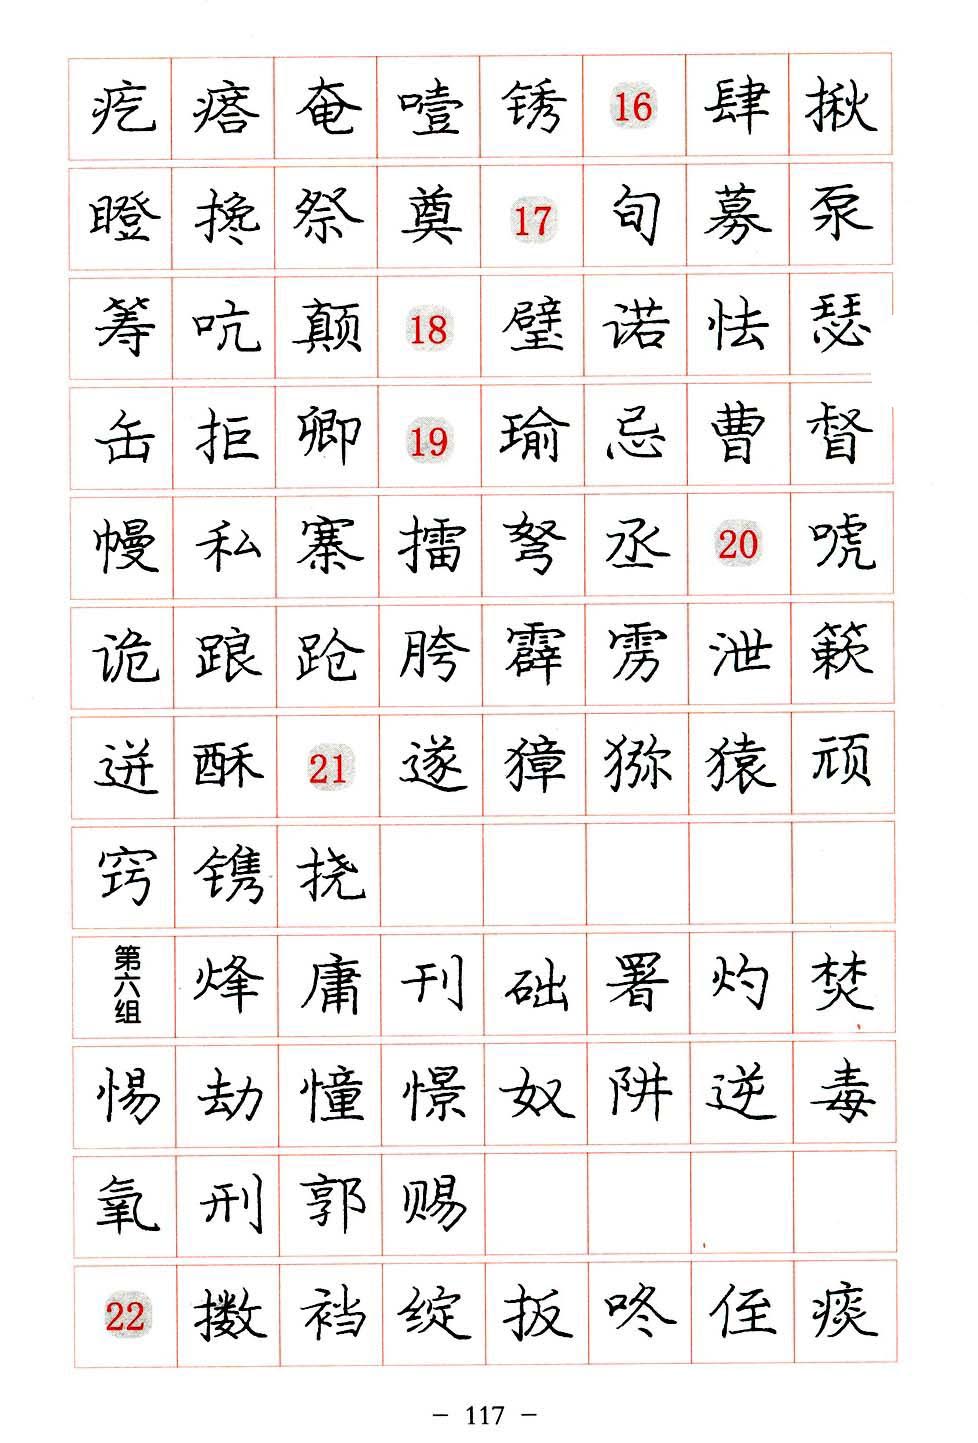 疙瘩奄噎锈16肆揪
瞪搀祭奠17旬募泵
筹吭颠18璧诺怯瑟
缶拒卿19瑜忌曹督
幔私寨擂弩丞20唬
诡踉跄胯霹雳泄簌
迸酥21遂獐猕猿顽
窍镌挠
第六组烽庸刊础署灼焚
惕劫憧憬奴阱逆毒
氧刑郭赐
22擞裆绽扳咚侄痰
－ 117 －